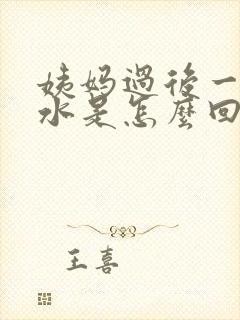 姨妈过后一
水是怎麼回
王喜